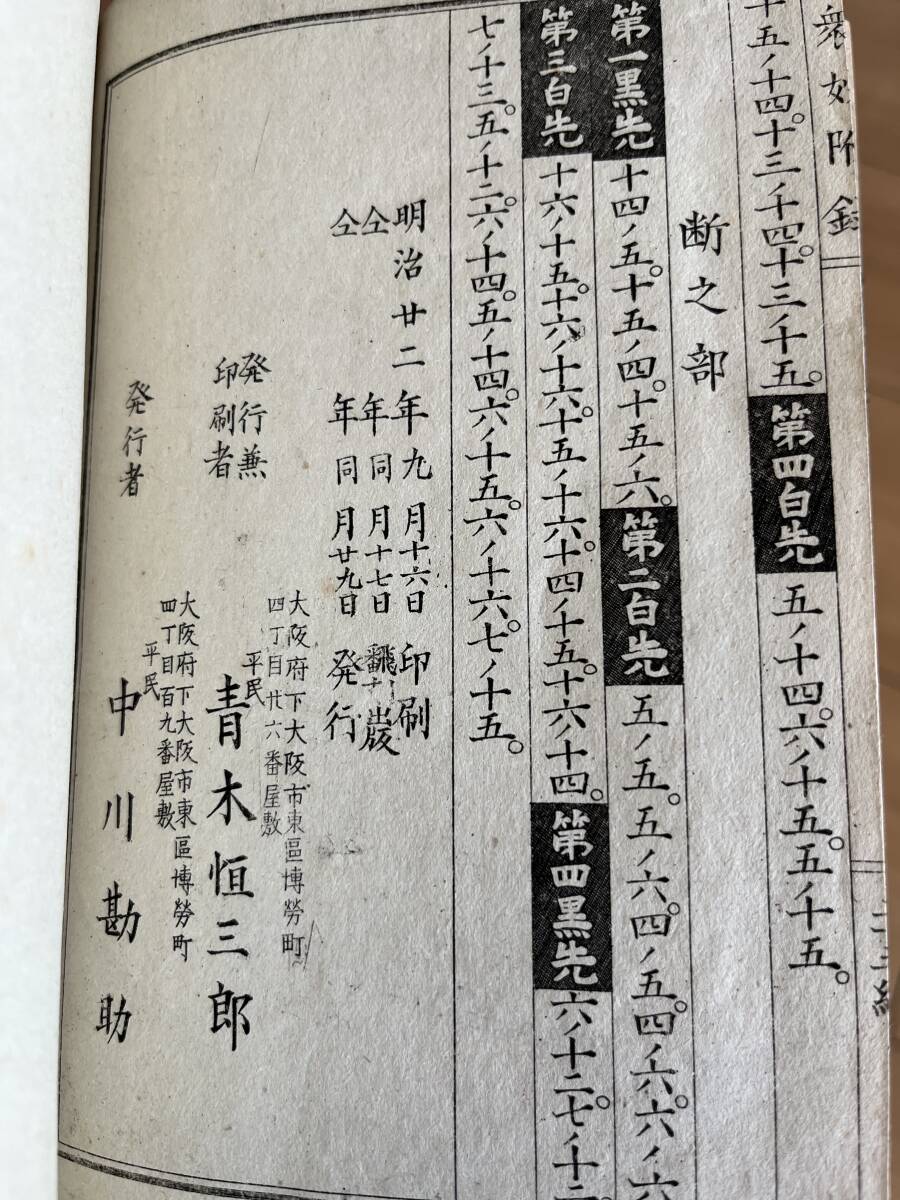 衆妙附録
十五ノ十四。十三ノ十四。十三ノ十五。第四白先 五ノ十四。六ノ十五。五ノ十五。
断之部
第一黒先 十四ノ五。十五ノ四。十五ノ六。第二白先 五ノ五。五ノ六。四ノ五。四ノ六。六ノ六
第三白先 十六ノ十五。十六ノ十六。十五ノ十六。十四ノ十五。十六ノ十四。第四黒先 六ノ十二。七ノ十二
七ノ十三。五ノ十二。六ノ十四。五ノ十四。六ノ十五。六ノ十六。七ノ十五。
明治廿二年九月十六日印刷
仝年同月十七日出版
仝年同月廿九日発行
大阪府下大阪市東區博勞町
四丁目廿六番屋敷
平民
発行兼
印刷者
青木恒三郎
大阪府下大阪市東區博勞町
四丁目百九番屋敷
平民
発行者
中川勘助